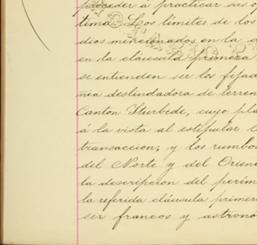 proceder á practicar sus o
tima. Los límites de los
dios mencionados en la
en la cláusula primera
se entienden ser los fijad
ñía deslindadora de terren
Canton Iturbide, cuyo pla
á la vista al estipular l
transaccion, y los rumbo
del Norte y del Orien
la descripcion del perím
la referida cláusula primer
ser francos y astrono